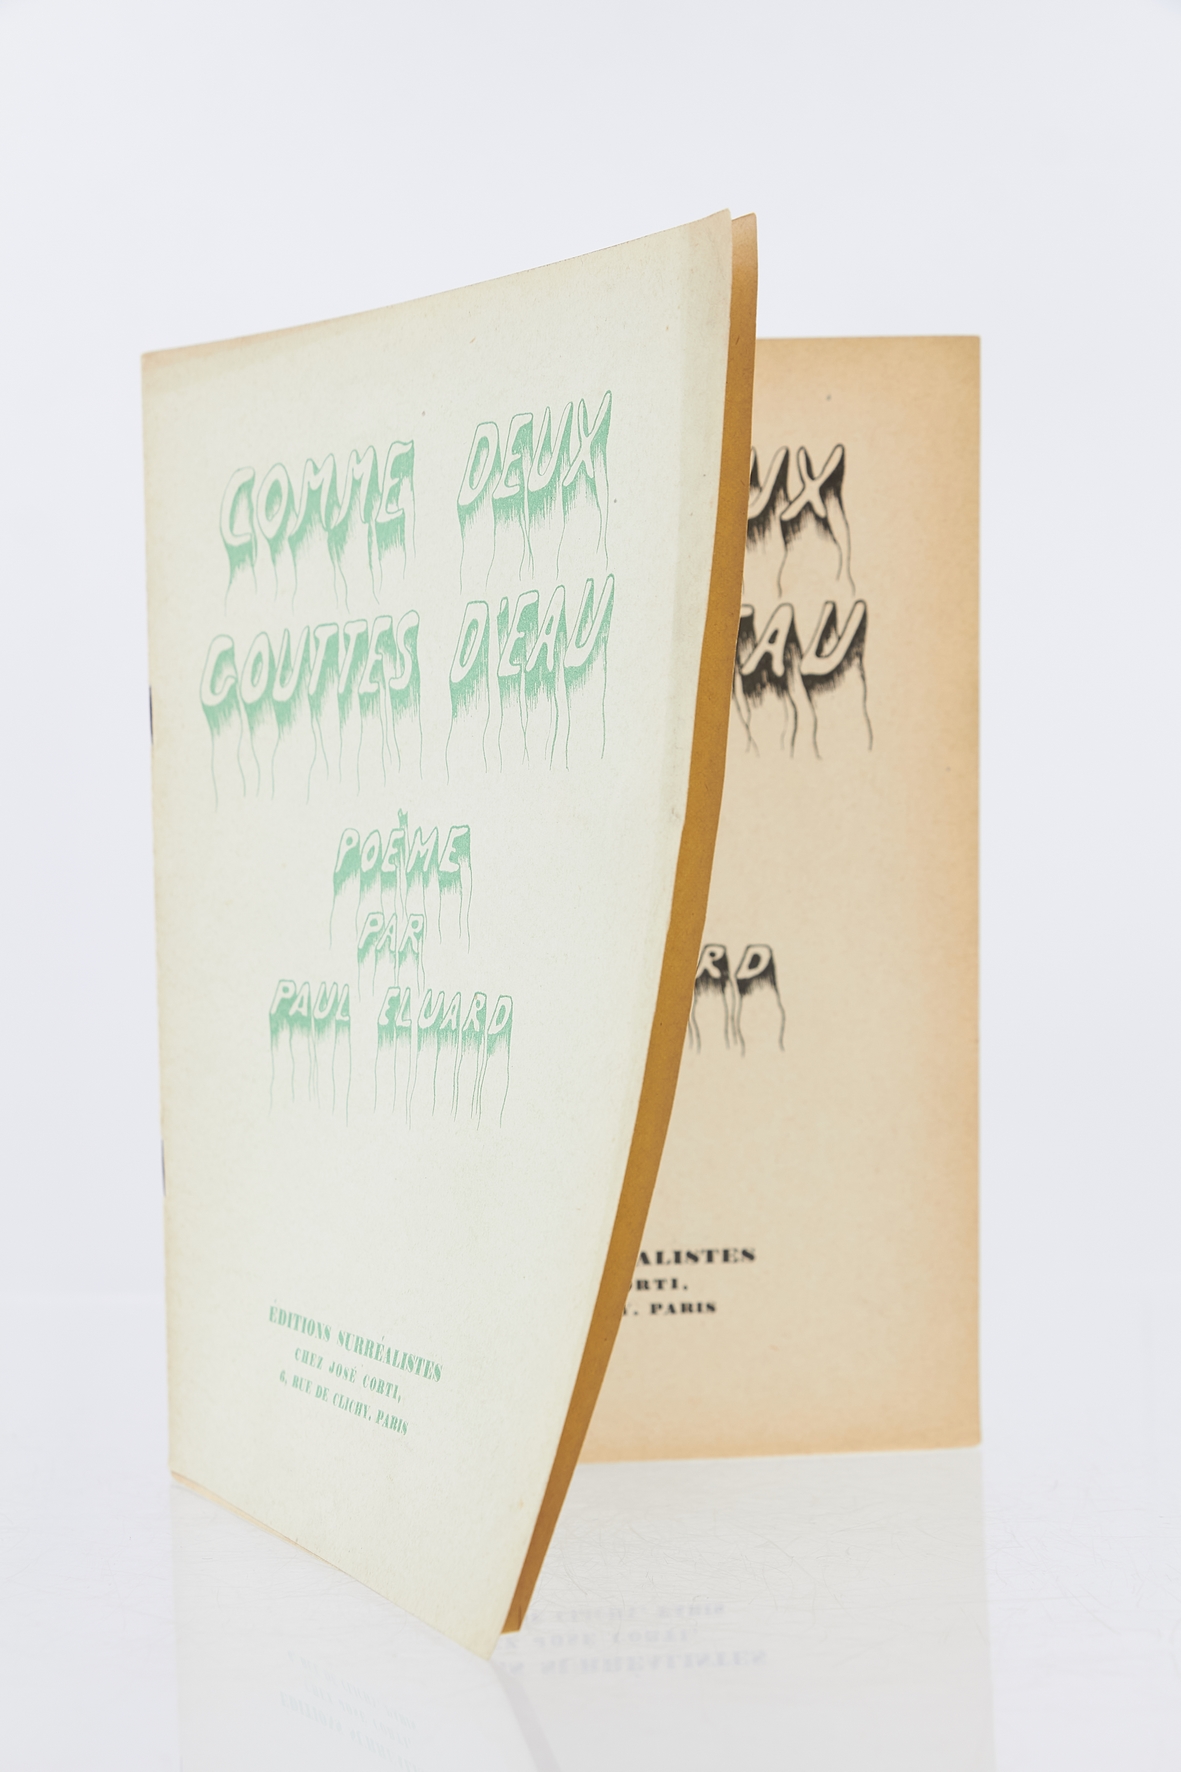 COMME DEUX
GOUTTES D'EAU
POÈME
PAR
PAUL ELUARD
ÉDITIONS SURRÉALISTES
CHEZ JOSÉ CORTI,
6, RUE DE CLICHY, PARIS
UX
EAU
RD
ALISTES
ORTI,
Y, PARIS